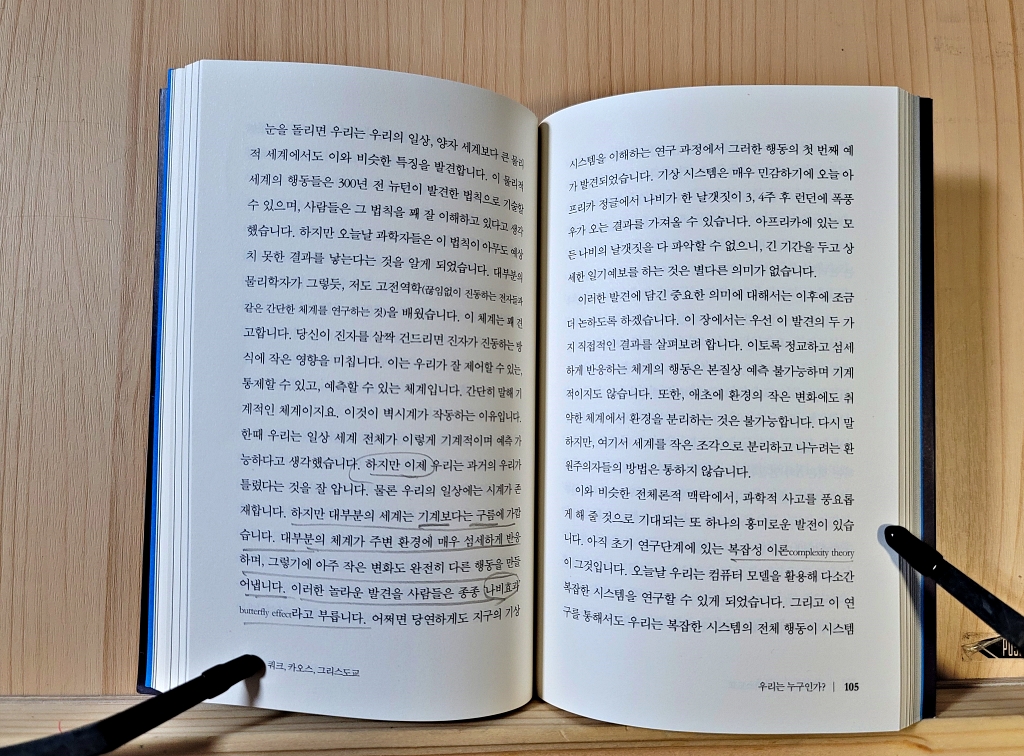 눈을 돌리면 우리는 우리의 일상, 양자 세계보다 큰 물리
적 세계에서도 이와 비슷한 특징을 발견합니다. 이 물리적
세계의 행동들은 300년 전 뉴턴이 발견한 법칙으로 기술할
수 있으며, 사람들은 그 법칙을 꽤 잘 이해하고 있다고 생각
했습니다. 하지만 오늘날 과학자들은 이 법칙이 아무도 예상
치 못한 결과를 낳는다는 것을 알게 되었습니다. 대부분의
물리학자가 그렇듯, 저도 고전역학(끊임없이 진동하는 전자들과
같은 간단한 체계를 연구하는 것)을 배웠습니다. 이 체계는 꽤 견
고합니다. 당신이 진자를 살짝 건드리면 진자가 진동하는 방
식에 작은 영향을 미칩니다. 이는 우리가 잘 제어할 수 있는,
통제할 수 있고, 예측할 수 있는 체계입니다. 간단히 말해 기
계적인 체계이지요. 이것이 벽시계가 작동하는 이유입니다.
한때 우리는 일상 세계 전체가 이렇게 기계적이며 예측 가
능하다고 생각했습니다. 하지만 이제 우리는 과거의 우리가
틀렸다는 것을 잘 압니다. 물론 우리의 일상에는 시계가 존
재합니다. 하지만 대부분의 세계는 기계보다는 구름에 가깝
습니다. 대부분의 체계가 주변 환경에 매우 섬세하게 반응
하며, 그렇기에 아주 작은 변화도 완전히 다른 행동을 만들
어냅니다. 이러한 놀라운 발견을 사람들은 종종 '나비효과'
butterfly effect라고 부릅니다. 어쩌면 당연하게도 지구의 기상
쿼크, 카오스, 그리스도교
시스템을 이해하는 연구 과정에서 그러한 행동의 첫 번째 예
가 발견되었습니다. 기상 시스템은 매우 민감하기에 오늘 아
프리카 정글에서 나비가 한 날갯짓이 3, 4주 후 런던에 폭풍
우가 오는 결과를 가져올 수 있습니다. 아프리카에 있는 모
든 나비의 날갯짓을 다 파악할 수 없으니, 긴 기간을 두고 상
세한 일기예보를 하는 것은 별다른 의미가 없습니다.
이러한 발견에 담긴 중요한 의미에 대해서는 이후에 조금
더 논하도록 하겠습니다. 이 장에서는 우선 이 발견의 두 가
지 직접적인 결과를 살펴보려 합니다. 이토록 정교하고 섬세
하게 반응하는 체계의 행동은 본질상 예측 불가능하며 기계
적이지도 않습니다. 또한, 애초에 환경의 작은 변화에도 취
약한 체계에서 환경을 분리하는 것은 불가능합니다. 다시 말
하지만, 여기서 세계를 작은 조각으로 분리하고 나누려는 환
원주의자들의 방법은 통하지 않습니다.
이와 비슷한 전체론적 맥락에서, 과학적 사고를 풍요롭
게 해 줄 것으로 기대되는 또 하나의 흥미로운 발전이 있습
니다. 아직 초기 연구단계에 있는 복잡성 이론complexity theory
이 그것입니다. 오늘날 우리는 컴퓨터 모델을 활용해 다소간
복잡한 시스템을 연구할 수 있게 되었습니다. 그리고 이 연
구를 통해서도 우리는 복잡한 시스템의 전체 행동이 시스템
우리는 누구인가? | 105